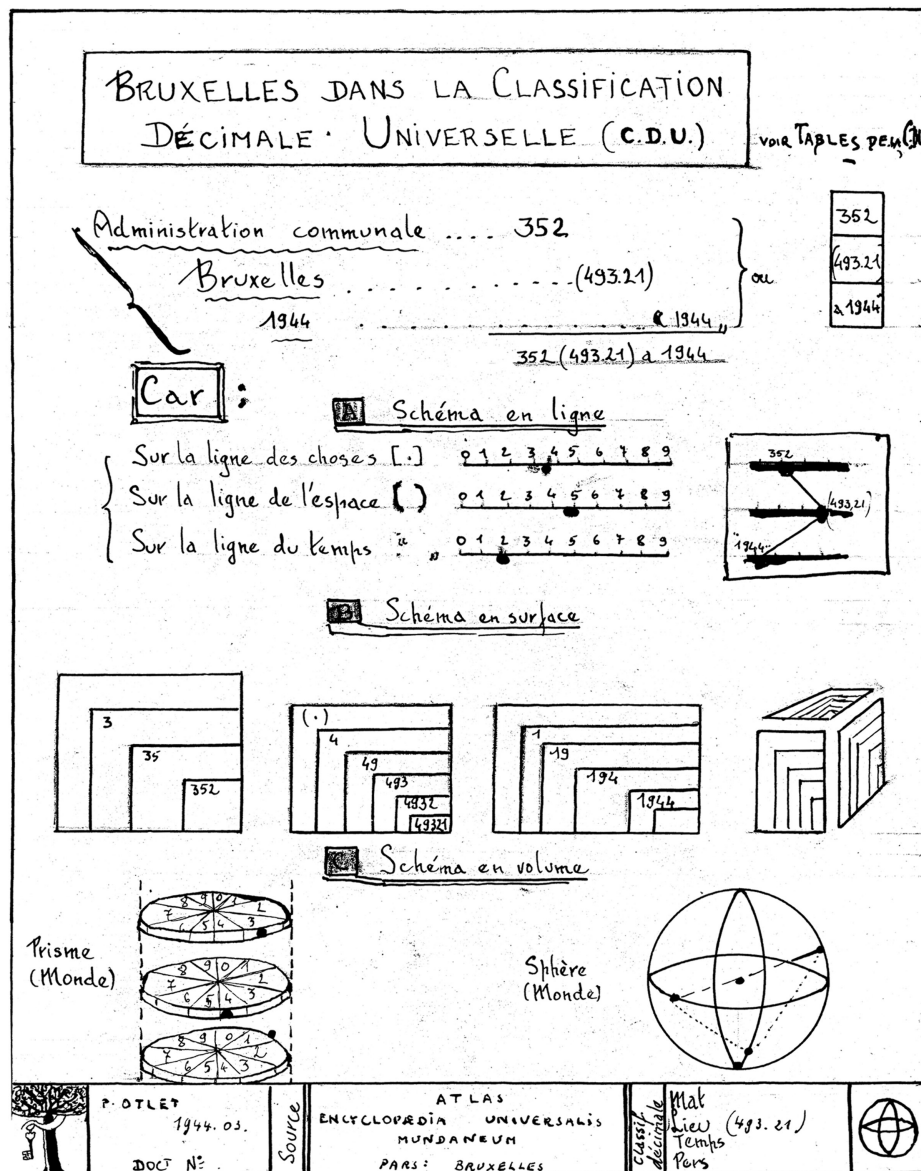 BRUXELLES DANS LA CLASSIFICATION
DÉCIMALE · UNIVERSELLE (C.D.U.)
VOIR TABLES DE LA
Administration communale .... 352
Bruxelles ............ (493.21)
1944 ............ " 1944 "
352 (493.21) a 1944
ou
352
(493.21)
a 1944
Car :
A Schéma en ligne
Sur la ligne des choses [.] 0 1 2 3 4 5 6 7 8 9
Sur la ligne de l'espace ( ) 0 1 2 3 4 5 6 7 8 9
Sur la ligne du temps " „ 0 1 2 3 4 5 6 7 8 9
352
(493.21)
"1944"
B Schéma en surface
3
35
352
(.)
4
49
493
4932
49321
1
19
194
1944
C Schéma en volume
Prisme
(Monde)
8 9 0 1
7 2
6 5 4 3
8 9 0 1
7 2
6 5 4 3
8 9 0 1
7 2
6 5 4 3
Sphère
(Monde)
P. OTLET
1944.03.
DOCT Nº
Source
ATLAS
ENCYCLOPÆDIA UNIVERSALIS
MUNDANEUM
PARS: BRUXELLES
Classif décimale
Mat
Lieu (493.21)
Temps
Pers